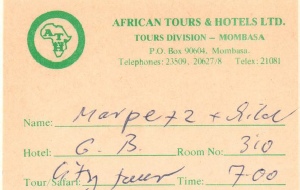 ATH
AFRICAN TOURS & HOTELS LTD.
TOURS DIVISION – MOMBASA
P.O. Box 90604, Mombasa.
Telephones: 23509, 20627/8 Telex: 21081
Name: Marpe +2 + Child
Hotel: G. B. Room No: 310
Tour/Safari: City tour Time: 7.00